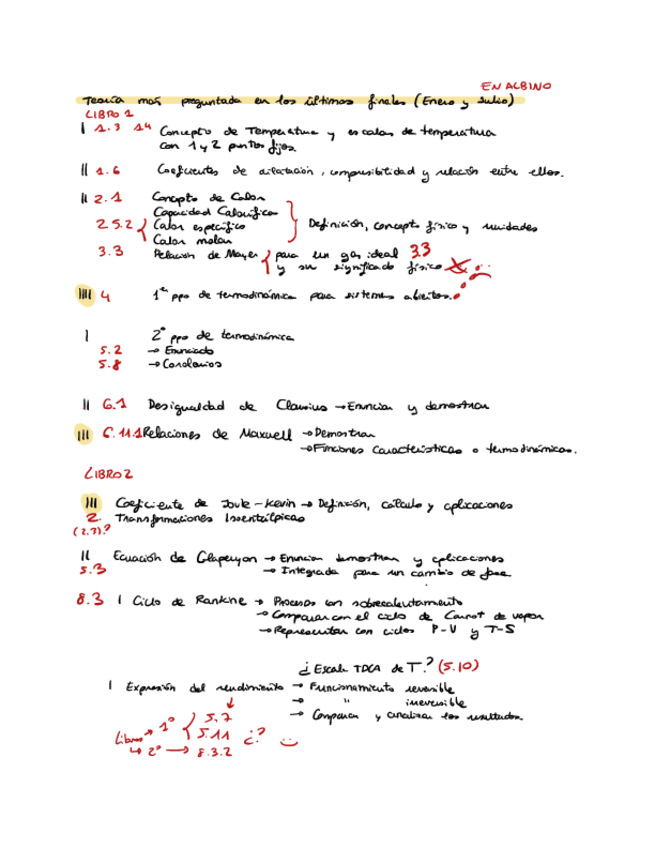 EN ALBINO
Teoría más preguntada en los últimos finales (Enero y Julio)
LIBRO 1
| 1.3 1.4 Concepto de Temperatura y escalas de temperatura
con 1 y 2 puntos fijos.
|| 1.6 Coeficientes de dilatación, compresibilidad y relación entre ellos.
|| 2.1 Concepto de Calor
Capacidad Calorífica
2.5.2 Calor específico Definición, concepto físico y unidades
Calor molar
3.3 Relación de Mayer para un gas ideal 3.3
y su significado físico
|||| 4 1er ppo de termodinámica para sistemas abiertos.
| 2º ppo de termodinámica
5.2 → Enunciado
5.8 → Corolarios
|| 6.1 Desigualdad de Clausius → Enunciar y demostrar
||| 6.11.1 Relaciones de Maxwell → Demostrar
→ Funciones Características o termodinámicas.
LIBRO 2
||| Coeficiente de Joule-Kelvin → Definición, cálculo y aplicaciones
2. Transformaciones Isoentálpicas
(2.7)?
|| Ecuación de Clapeyron → Enunciar demostrar y aplicaciones
5.3 → Integrada para un cambio de fase
8.3 | Ciclo de Rankine → Procesos con sobrecalentamiento
→ Comparar con el ciclo de Carnot de vapor
→ Representar con ciclos P-V y T-S
¿Escala TDCA de T.? (5.10)
| Expresión del rendimiento → Funcionamiento reversible
→ " irreversible
→ Comparar y analizar los resultados.
Libros → 1º 5.7
5.11 ¿?
↳ 2º → 8.3.2